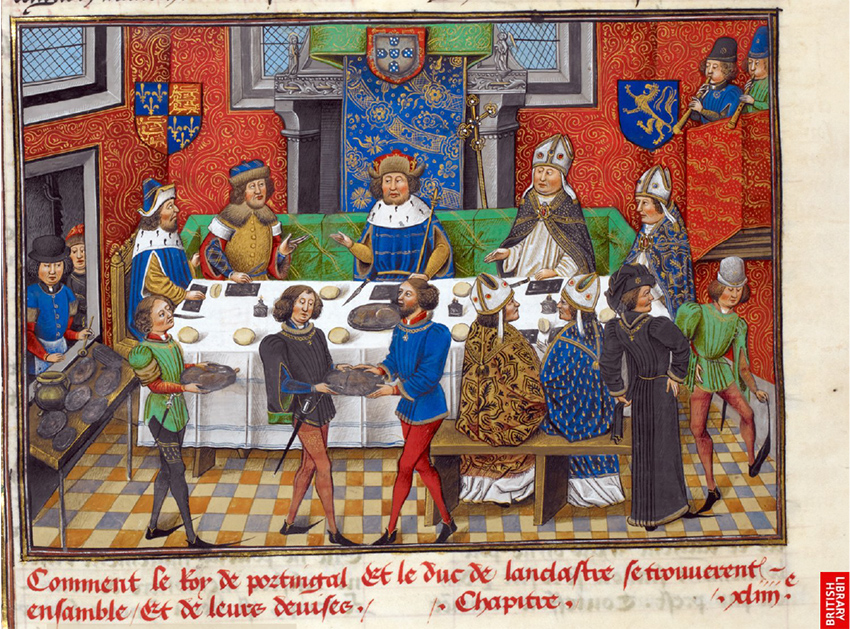 Comment le Roy de portingal Et le duc de lanclastre se trouuerent
ensamble / Et de leurs deuises . / / . Chapitre . / . xliiij e
BRITISH
LIBRARY